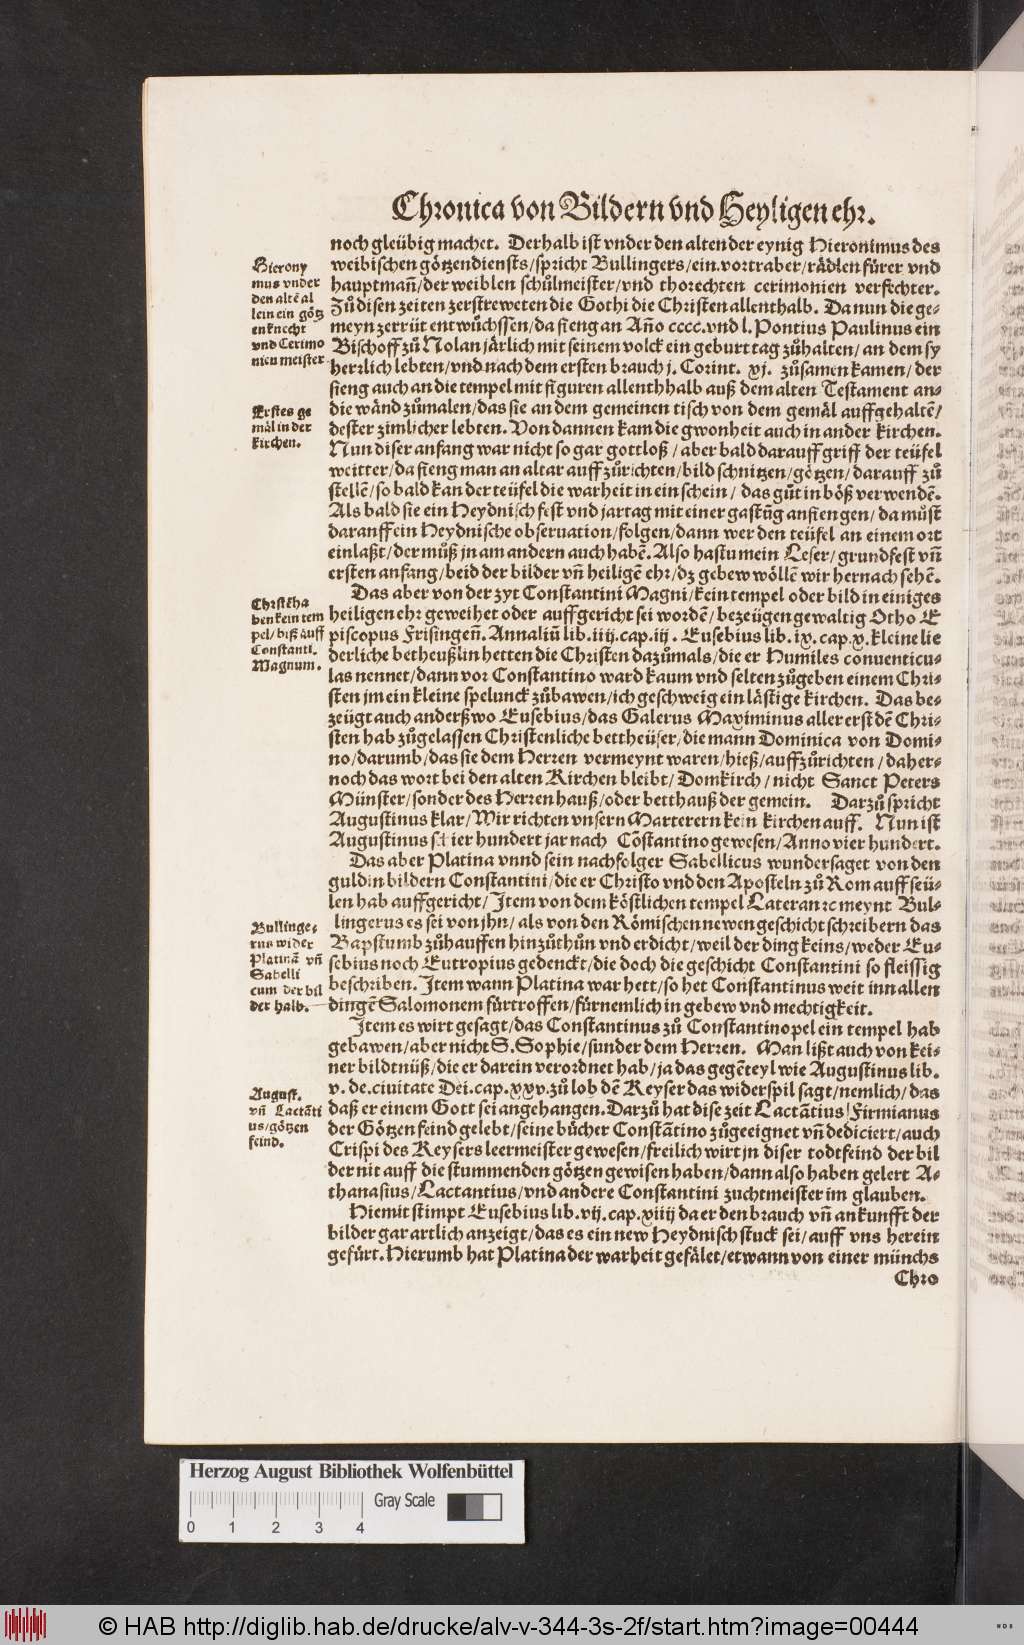 Chronica von Bildern vnd Heyligen ehr.
noch gleübig machet. Derhalb ist vnder den alten der eynig Hieronimus des
weibischen götzendiensts/spricht Bullingers/ein vortraber/rädlen fürer vnd
hauptmañ/der weiblen schůlmeister/vnd thorechten cerimonien verfechter.
Zů disen zeiten zerstreweten die Gothi die Christen allenthalb. Da nun die ge-
meyn zerrüt entwůchssen/da fieng an Año cccc.vnd l. Pontius Paulinus ein
Bischoff zů Nolan järlich mit seinem volck ein geburt tag zůhalten/an dem sy
herrlich lebten/vnd nach dem ersten brauch j. Corint. xj. zůsamen kamen/der
fieng auch an die tempel mit figuren allenthhalb auß dem alten Testament an-
die wänd zůmalen/das sie an dem gemeinen tisch von dem gemäl auffgehaltē/
dester zimlicher lebten. Von dannen kam die gwonheit auch in ander kirchen.
Nun diser anfang war nicht so gar gottloß/aber bald darauff griff der teüfel
weitter/da fieng man an altar auff zůrichten/bild schnitzen/götzen/darauff zů
stellē/so bald kan der teüfel die warheit in ein schein/das gůt in böß verwendē.
Als bald sie ein Heydnisch fest vnd jartag mit einer gastūg anfiengen/da můst
darauff ein Heydnische obseruation/folgen/dann wer den teüfel an einem ort
einlaßt/der můß jn am andern auch habē. Also hastu mein Leser/grundfest vñ
ersten anfang/beid der bilder vñ heiligē ehr/dz gebew wöllē wir hernach sehē.
Das aber von der zyt Constantini Magni/kein tempel oder bild in einiges
heiligen ehr geweihet oder auffgericht sei wordē/bezeügen gewaltig Otho E
piscopus Frisingeñ. Annaliū lib.iiij.cap.iij. Eusebius lib.ix.cap.x.kleine lie
derliche betheußlin hetten die Christen dazůmals/die er Humiles conuenticu-
las nennet/dann vor Constantino ward kaum vnd selten zůgeben einem Chri-
sten jm ein kleine spelunck zůbawen/ich geschweig ein lästige kirchen. Das be-
zeügt auch anderßwo Eusebius/das Galerus Maximinus aller erst dē Chri-
sten hab zůgelassen Christenliche bettheüser/die mann Dominica von Domi-
no/darumb/das sie dem Herren vermeynt waren/hieß/auffzůrichten/daher-
noch das wort bei den alten Kirchen bleibt/Domkirch/nicht Sanct Peters
Münster/sonder des Herren hauß/oder betthauß der gemein. Darzů spricht
Augustinus klar/Wir richten vnsern Marterern kein kirchen auff. Nun ist
Augustinus schier hundert jar nach Cōstantino gewesen/Anno vier hundert.
Das aber Platina vnnd sein nachfolger Sabellicus wundersaget von den
guldin bildern Constantini/die er Christo vnd den Aposteln zů Rom auff seü-
len hab auffgericht/Item von dem köstlichen tempel Lateran ꝛc meynt Bul-
lingerus es sei von jhn/als von den Römischen newen geschicht schreibern das
Bapstumb zůhauffen hinzůthůn vnd erdicht/weil der ding keins/weder Eu-
sebius noch Eutropius gedenckt/die doch die geschicht Constantini so fleissig
beschriben. Item wann Platina war hett/so het Constantinus weit inn allen
dingē Salomonem fürtroffen/fürnemlich in gebew vnd mechtigkeit.
Item es wirt gesagt/das Constantinus zů Constantinopel ein tempel hab
gebawen/aber nicht S. Sophie/sunder dem Herren. Man lißt auch von kei-
ner bildtnüß/die er darein verordnet hab/ja das gegēteyl wie Augustinus lib.
v. de. ciuitate Dei.cap.xxv.zů lob dē Keyser das widerspil sagt/nemlich/das
daß er einem Gott sei angehangen. Darzů hat dise zeit Lactātius Firmianus
der Götzen feind gelebt/seine bůcher Constātino zůgeeignet vñ dediciert/auch
Crispi des Keysers leermeister gewesen/freilich wirt jn diser todtfeind der bil
der nit auff die stummenden götzen gewisen haben/dann also haben gelert A-
thanasius/Lactantius/vnd andere Constantini zuchtmeister im glauben.
Hiemit stimpt Eusebius lib.vij.cap.xiiij da er den brauch vñ ankunfft der
bilder gar artlich anzeigt/das es ein new Heydnisch stuck sei/auff vns herein
gefürt. Hierumb hat Platina der warheit gefälet/etwann von einer münchs
Chro
Hierony
mus vnder
den altē al
lein ein götz
en knecht
vnd Cerimo
nien meister
Erstes ge
mäl in der
kirchen.
Christē ha
ben kein tem
pel/biß auff
Constanti.
Magnum.
Bullinge-
rus wider
Platinā vñ
Sabelli
cum der bil
der halb.
August.
vñ Lactāti
us/götzen
feind.
Herzog August Bibliothek Wolfenbüttel
0 1 2 3 4
Gray Scale
© HAB http://diglib.hab.de/drucke/alv-v-344-3s-2f/start.htm?image=00444